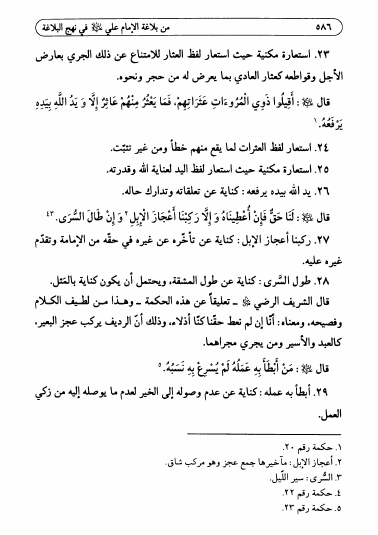 ٥٨٦ من بلاغة الإمام علي ﷺ في نهج البلاغة
٢٣. استعارة مكنية حيث استعار لفظ العثار للامتناع عن ذلك الجري بعارض
الأجل وقواطعه كعثار العادي بما يعرض له من حجر ونحوه.
قال ﷺ : أَقِيلُوا ذَوِي الْمُرُوءَاتِ عَثَرَاتِهِمْ، فَمَا يَعْثُرُ مِنْهُمْ عَاثِرٌ إِلَّا وَ يَدُ اللَّهِ بِيَدِهِ
يَرْفَعُهُ.١
٢٤. استعار لفظ العثرات لما يقع منهم خطأً ومن غير تثبّت.
٢٥. استعارة مكنية حيث استعار لفظ اليد لعناية الله وقدرته.
٢٦. يد الله بيده يرفعه: كناية عن تعلقاته وتدارك حاله.
قال ﷺ : لَنَا حَقٌّ فَإِنْ أُعْطِينَاهُ وَ إِلَّا رَكِبْنَا أَعْجَازَ الْإِبِلِ٢ وَ إِنْ طَالَ السُّرَى.٤٣
٢٧. ركبنا أعجاز الإبل: كناية عن تأخّره عن غيره في حقّه من الإمامة وتقدّم
غيره عليه.
٢٨. طول السُّرى: كناية عن طول المشقة، ويحتمل أن يكون كناية بالمَثل.
قال الشريف الرضي ـ تعليقاً عن هذه الحكمة ـ وهذا من لطيف الكلام
وفصيحه، ومعناه: أنّا إن لم نعط حقّنا كنّا أذلاء، وذلك أنّ الرديف يركب عجز البعير،
كالعبد والأسير ومن يجري مجراهما.
قال ﷺ : مَنْ أَبْطَأَ بِهِ عَمَلُهُ لَمْ يُسْرِعْ بِهِ نَسَبُهُ.٥
٢٩. أبطأ به عمله: كناية عن عدم وصوله إلى الخير لعدم ما يوصله إليه من زكي
العمل.
١. حكمة رقم ٢٠.
٢. أعجاز الإبل: مآخيرها جمع عجز وهو مركب شاق.
٣. السُّرى: سير اللّيل.
٤. حكمة رقم ٢٢.
٥. حكمة رقم ٢٣.